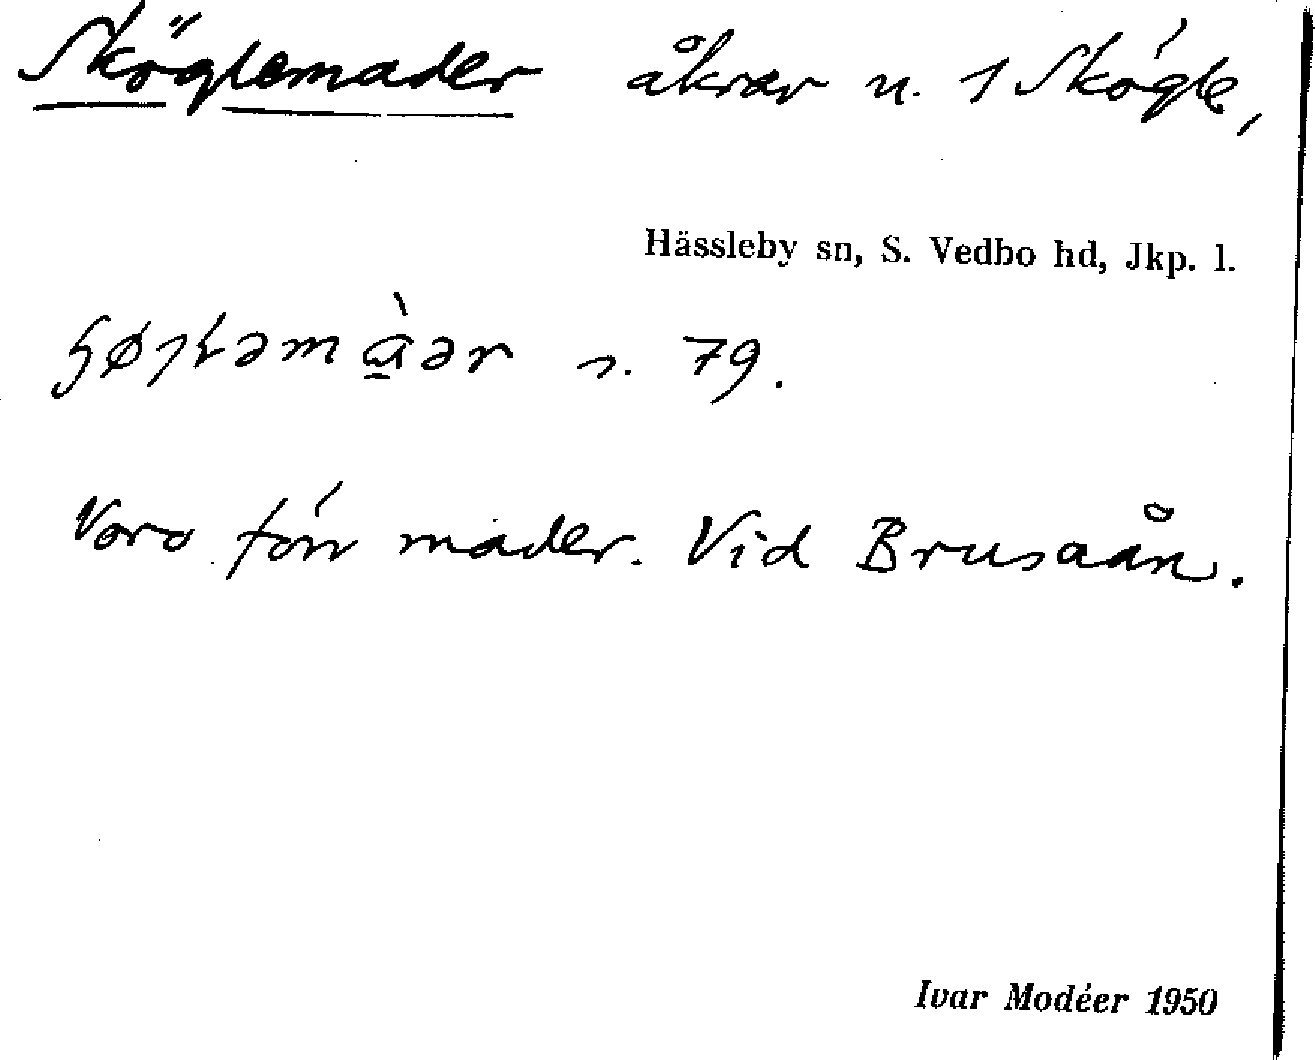 Sköglemader åkrar u. 1 Skögle,
Hässleby sn, S. Vedbo hd, Jkp. l.
s. 79.
Voro förr mader. Vid Brusaån.
Ivar Modéer 1950